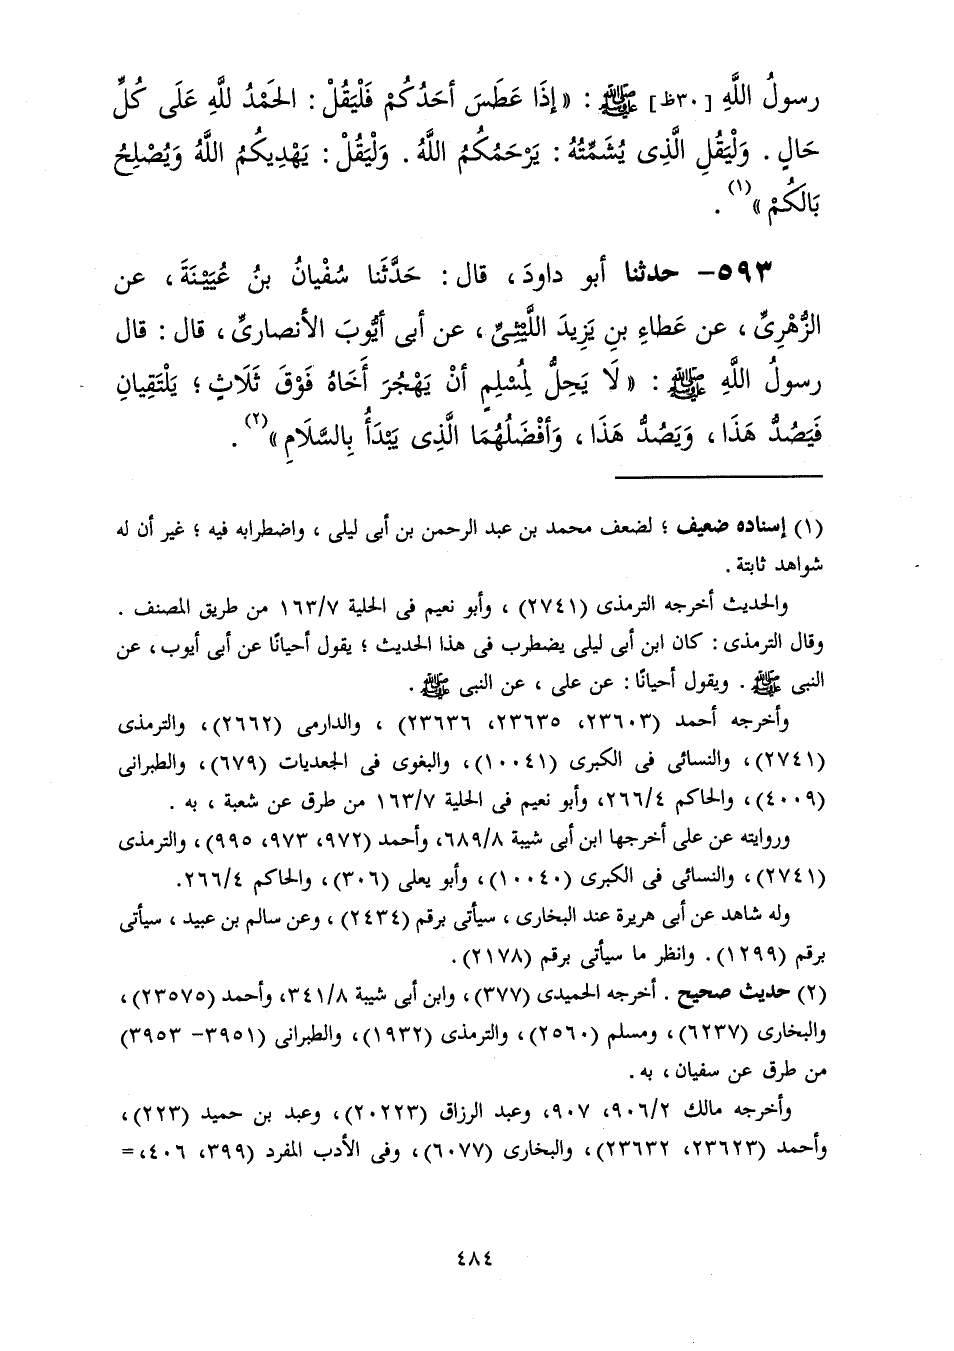 رسولُ اللَّهِ [٣٠ظ] ﷺ : « إذَا عَطَسَ أحَدُكُمْ فَلْيَقُلْ : الحَمْدُ للَّهِ عَلَى كُلِّ
حَالٍ . وَلْيَقُلِ الَّذِى يُشَمِّتُهُ : يَرْحَمُكُمُ اللَّهُ . وَلْيَقُلْ : يَهْدِيكُمُ اللَّهُ وَيُصْلِحُ
بَالَكُمْ »(١) .
٥٩٣- حدثنا أبو داودَ ، قال : حَدَّثَنا سُفْيانُ بنُ عُيَيْنَةَ ، عن
الزُّهْرِىِّ ، عن عَطاءِ بنِ يَزِيدَ اللَّيْثِىِّ ، عن أبى أيُّوبَ الأنصارىِّ ، قال : قال
رسولُ اللَّهِ ﷺ : « لَا يَحِلُّ لِمُسْلِمٍ أنْ يَهْجُرَ أَخَاهُ فَوْقَ ثَلَاثٍ ؛ يَلْتَقِيانِ
فَيَصُدُّ هَذَا ، وَيَصُدُّ هَذَا ، وَأفْضَلُهُمَا الَّذِى يَبْدَأُ بِالسَّلَامِ »(٢) .
(١) إسناده ضعيف ؛ لضعف محمد بن عبد الرحمن بن أبى ليلى ، واضطرابه فيه ؛ غير أن له
شواهد ثابتة .
والحديث أخرجه الترمذى (٢٧٤١) ، وأبو نعيم فى الحلية ١٦٣/٧ من طريق المصنف .
وقال الترمذى : كان ابن أبى ليلى يضطرب فى هذا الحديث ؛ يقول أحيانًا عن أبى أيوب ، عن
النبى ﷺ . ويقول أحيانًا : عن على ، عن النبى ﷺ .
وأخرجه أحمد (٢٣٦٠٣، ٢٣٦٣٥، ٢٣٦٣٦) ، والدارمى (٢٦٦٢)، والترمذى
(٢٧٤١)، والنسائى فى الكبرى (١٠٠٤١)، والبغوى فى الجعديات (٦٧٩)، والطبرانى
(٤٠٠٩)، والحاكم ٢٦٦/٤، وأبو نعيم فى الحلية ١٦٣/٧ من طرق عن شعبة ، به .
وروايته عن على أخرجها ابن أبى شيبة ٦٨٩/٨، وأحمد (٩٧٢، ٩٧٣، ٩٩٥)، والترمذى
(٢٧٤١)، والنسائى فى الكبرى (١٠٠٤٠)، وأبو يعلى (٣٠٦)، والحاكم ٢٦٦/٤.
وله شاهد عن أبى هريرة عند البخارى ، سيأتى برقم (٢٤٣٤) ، وعن سالم بن عبيد ، سيأتى
برقم (١٢٩٩). وانظر ما سيأتى برقم (٢١٧٨).
(٢) حديث صحيح . أخرجه الحميدى (٣٧٧)، وابن أبى شيبة ٣٤١/٨، وأحمد (٢٣٥٧٥)،
والبخارى (٦٢٣٧)، ومسلم (٢٥٦٠)، والترمذى (١٩٣٢)، والطبرانى (٣٩٥١- ٣٩٥٣)
من طرق عن سفيان ، به .
وأخرجه مالك ٩٠٦/٢، ٩٠٧، وعبد الرزاق (٢٠٢٢٣)، وعبد بن حميد (٢٢٣)،
وأحمد (٢٣٦٢٣، ٢٣٦٣٢)، والبخارى (٦٠٧٧)، وفى الأدب المفرد (٣٩٩، ٤٠٦، =
٤٨٤